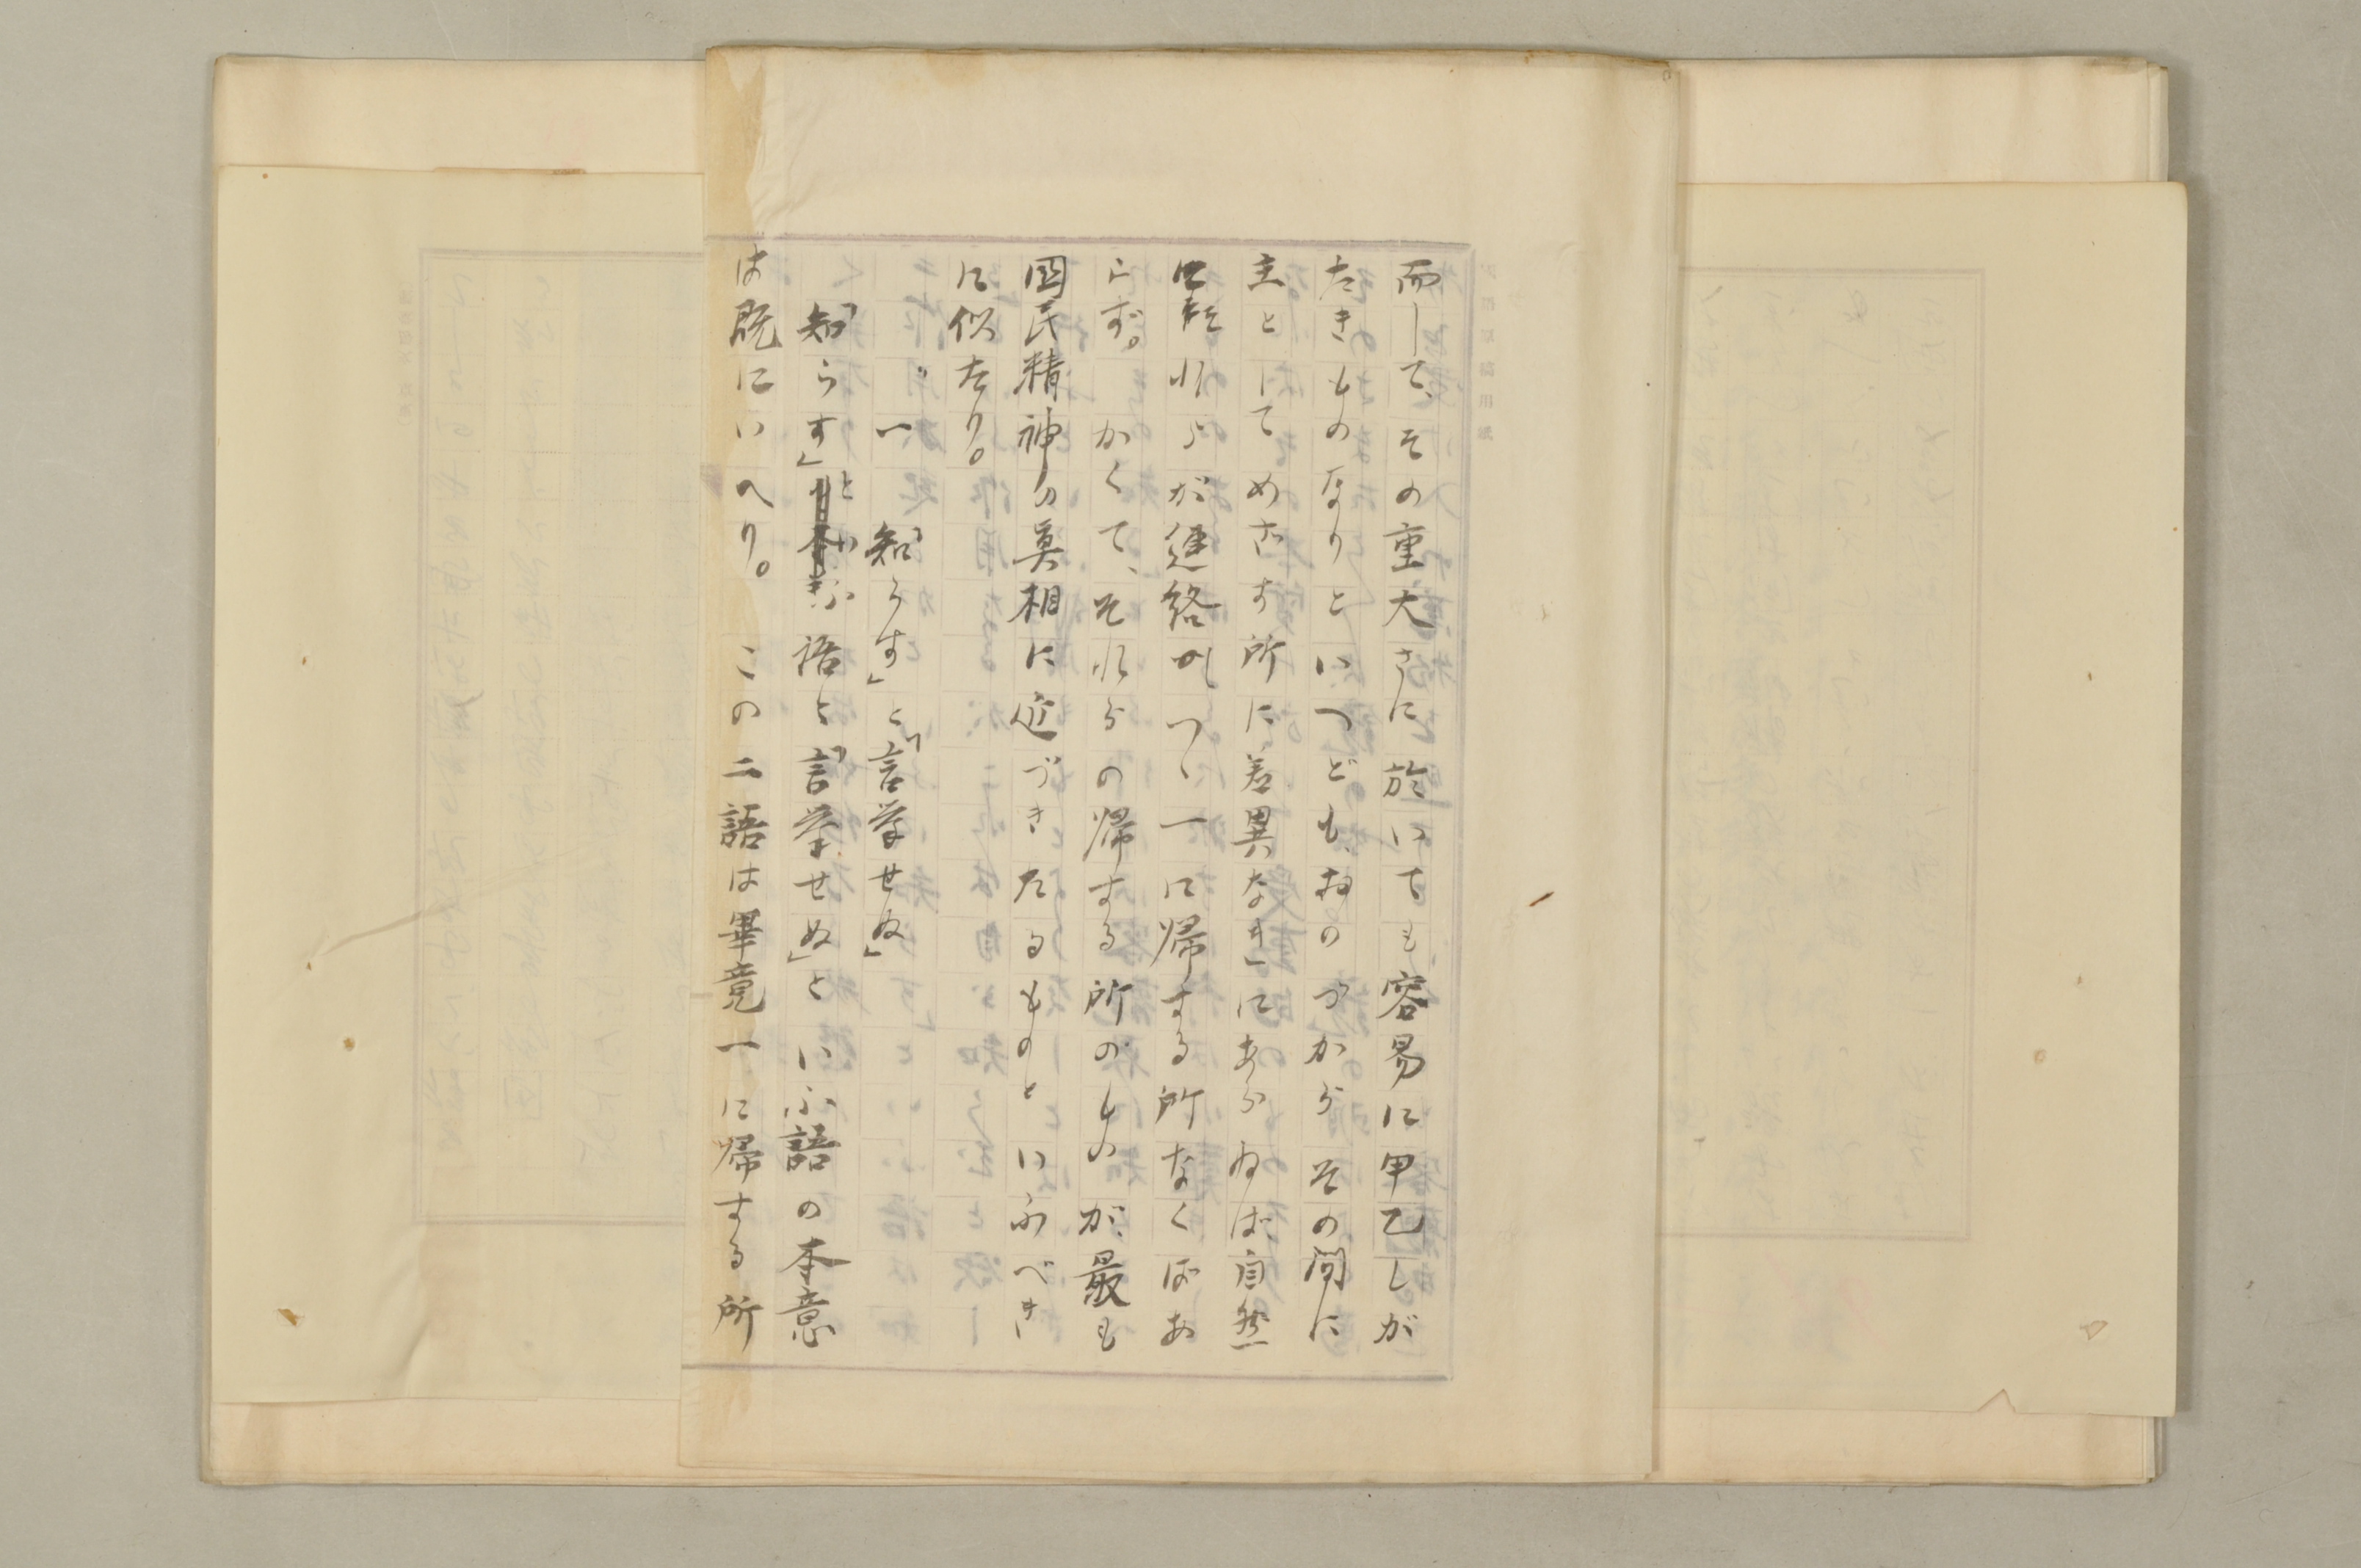 而して、その重大さに於いても容易に甲乙しが
たきものなりといへども、おのづからその間に
主としてめざす所に差異なきにあらねば、自然
これらが連絡しつゝ一に帰する所なくばあ
らず。かくて、それらの帰する所のものが、最も
國民精神の真相に近づきたるものといふべき
に似たり。
一「知らす」と「言挙せぬ」
「知らす」といふ語と「言挙せぬ」といふ語の本意
は既にいへり。この二語は畢竟一に帰する所